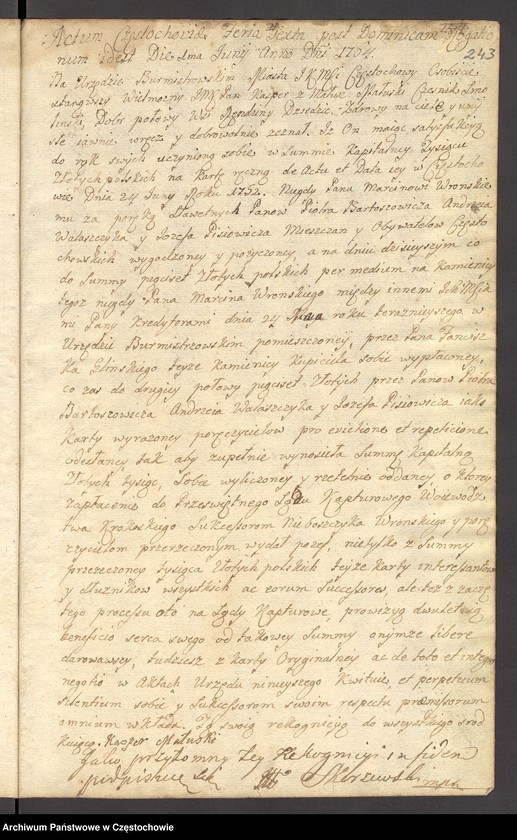 Actum Częstochoviæ Feria Sexta post Dominicam Rogatio
num idest Die 1ma Junij Anno Dni 1764.
243
Na Urzędzie Burmistrzowskim Miasta J K Mci Częstochowy Osobiście
stanąwszy Wielmożny JMĆ Pan Kasper z Małuski Cześnik Smo
liński, Dobr połowy Wsi Rędziny Dziedzic. Zdrowy na ciele y umy
śle iawnie wręcz y dobrowolnie zeznał. Iż On maiąc satysfakcyą
do rąk swych uczynioną sobie w Summie Kapitalney Tysiącu
Złotych polskich na Kartę ręczną de Actu et Data iey w Częstocho
wie Dnia 24 Juny Roku 1752. Niegdy Panu Marcinowi Wronskie
mu za poręką Sławetnych Panow Piotra Bartoszowicza Andrzeia
Walaszczyka y Jozefa Pisiowicza Mieszczan y Obywatelow Często
chowskich wygodzoney y pożyczoney, a na dniu dzisieyszym co
do Summy pięciset Złotych polskich per medium na kamienicy
tegoż niegdy Pana Marcina Wronskiego między innemi
mi Pany Kredytorami dnia 24 Maja roku teraznieyszego w
Urzędzie Burmistrzowskim pomieszczoney, przez Pana Francisz
ka Glinskiego teyże Kamienicy Kupiciela sobie wypłaconey,
co zas do drugiey połowy pięciset Złotych przez Panow Piotra
Bartoszowicza Andrzeia Walaszczyka y Jozefa Pisiowicza iako
Karty wyrażoney poręczycielow pro evictione et repetitione
odebraney tak aby zupełnie wynosiła Summę Kapitalną
Złotych tysiąc, Sobie wyliczoney y rzetelnie oddaney, o ktorey
zapłacenie do Prześwietnego Sądu Kapturowego Wojewodz
twa Krakoskiego Sukcessorom Nieboszczyka Wronskiego y porę
czycielom przerzeczonym wydał pozew, nietylko z Summy
przerzeczoney tysiąca Złotych polskich teyże Karty interessantow
y dłużnikow wszystkich ac eorum Successores, ale też z zaczę
tego processu oto na Sądy Kapturowe, prowizyą dwuletnią
beneficio serca swego od takowey Summy onymże libere
darowawszy, tudziesz z Karty Oryginalney ac de toto et integro
negotii w Aktach Urzędu ninieyszego Kwituie, et perpetuum
silentium sobie y Sukcessorom swoim respectu præmissorum
omnium wkłada. Tą swoią rekognicyą do wszystkiego środ
kuiącą. Kasper Małuski
Jako przytomny tey Rekognicyi in fidem
podpisuię się Skrzewski mpp